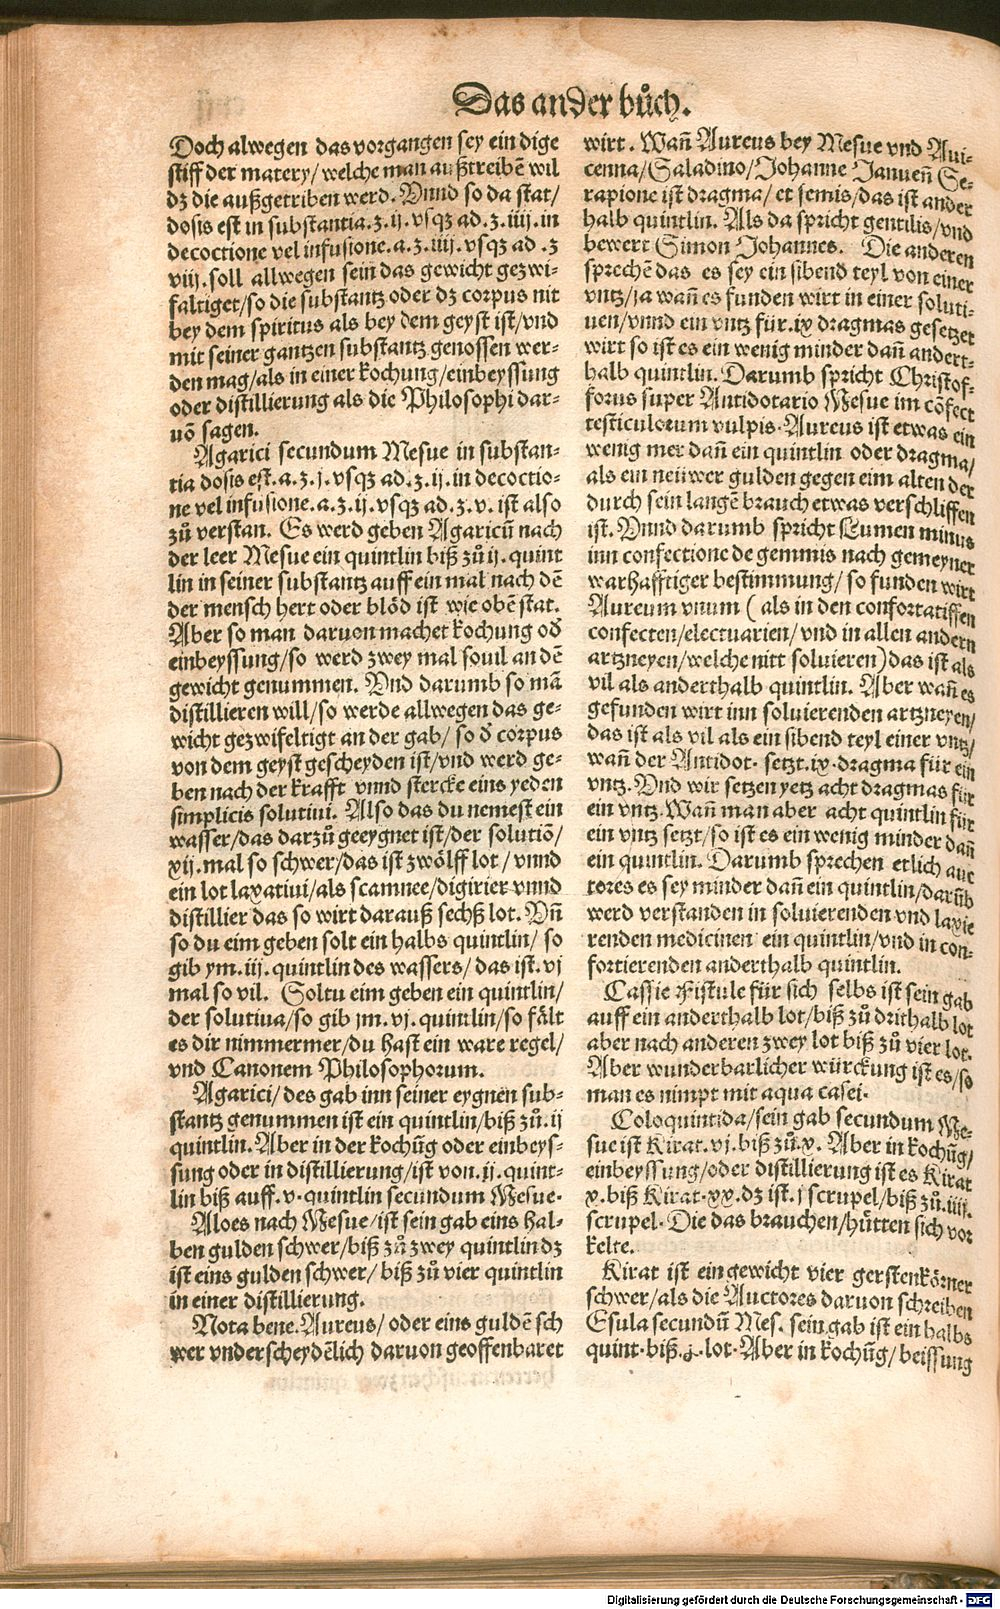 Das ander bůch.
Doch alwegen das vorgangen sey ein dige
stiff der matery/welche man außtreibē wil
dz die außgetriben werd. Vnnd so da stat/
dosis est in substantia.ʒ.ij.vsqꝫ ad.ʒ.iiij.in
decoctione vel infusione.a.ʒ.iiij.vsqꝫ ad.ʒ
viij.soll allwegen sein das gewicht gezwi-
faltiget/so die substantz oder dz corpus nit
bey dem spiritus als bey dem geyst ist/vnd
mit seiner gantzen substantz genossen wer-
den mag/als in einer kochung/einbeyssung
oder distillierung als die Philosophi dar-
uō sagen.
Agarici secundum Mesue in substan-
tia dosis est.a.ʒ.j.vsqꝫ ad.ʒ.ij.in decoctio-
ne vel infusione.a.ʒ.ij.vsqꝫ ad.ʒ.v. ist also
zů verstan. Es werd geben Agaricū nach
der leer Mesue ein quintlin biß zů ij.quint
lin in seiner substantz auff ein mal nach dē
der mensch hert oder blöd ist wie obē stat.
Aber so man daruon machet kochung oď
einbeyssung/so werd zwey mal souil an dē
gewicht genummen. Vnd darumb so mā
distillieren will/so werde allwegen das ge-
wicht gezwifeltigt an der gab/so ď corpus
von dem geyst gescheyden ist/vnd werd ge-
ben nach der krafft vnnd stercke eins yeden
simplicis solutiui. Also das du nemest ein
wasser/das darzů geeygnet ist/der solutiō/
xij.mal so schwer/das ist zwölff lot/vnnd
ein lot laxatiui/als scamnee/digirier vnnd
distillier das so wirt darauß sechß lot. Vn̄
so du eim geben solt ein halbs quintlin/ so
gib ym.iij.quintlin des wassers/das ist.vj
mal so vil. Soltu eim geben ein quintlin/
der solutiua/so gib jm.vj.quintlin/so fält
es dir nimmermer/du hast ein ware regel/
vnd Canonem Philosophorum.
Agarici/des gab inn seiner eygnen sub-
stantz genummen ist ein quintlin/biß zů.ij
quintlin.Aber in der kochūg oder einbeys-
sung oder in distillierung/ist von.ij.quint-
lin biß auff.v.quintlin secundum Mesue.
Aloes nach Mesue/ist sein gab eins hal-
ben gulden schwer/biß zů zwey quintlin dz
ist eins gulden schwer/ biß zů vier quintlin
in einer distillierung.
Nota bene.Aureus/oder eins guldē sch
wer vnderscheydēlich daruon geoffenbaret
wirt. Wan̄ Aureus bey Mesue vnd Aui-
cenna/Saladino/Johanne Januen̄ Se-
rapione ist dragma/et semis/das ist ander
halb quintlin. Als da spricht gentilis/vnd
bewert Simon Johannes. Die anderen
sprechē das es sey ein sibend teyl von einer
vntz/ja wan̄ es funden wirt in einer soluti-
uen/vnnd ein vntz für.ix dragmas gesetzet
wirt so ist es ein wenig minder dan̄ andert-
halb quintlin.Darumb spricht Christof-
forus super Antidotario Mesue im cōfect
testiculorum vulpis.Aureus ist etwas ein
wenig mer dan̄ ein quintlin oder dragma/
als ein neüwer gulden gegen eim alten der
durch sein langē brauch etwas verschliffen
ist. Vnnd darumb spricht Lumen minus
inn confectione de gemmis nach gemeyner
warhafftiger bestimmung/so funden wirt
Aureum vnum ( als in den confortatiffen
confecten/electuarien/vnd in allen andern
artzneyen/welche nitt soluieren)das ist als
vil als anderthalb quintlin. Aber wan̄ es
gefunden wirt inn soluierenden artzneyen/
das ist als vil als ein sibend teyl einer vntz/
wan̄ der Antidot. setzt.ix.dragma für ein
vntz.Vnd wir setzen yetz acht dragmas für
ein vntz.Wan̄ man aber acht quintlin für
ein vntz setzt/so ist es ein wenig minder dan̄
ein quintlin. Darumb sprechen etlich auc
tores es sey minder dan̄ ein quintlin/darūb
werd verstanden in soluierenden vnd laxie
renden medicinen ein quintlin/vnd in con-
fortierenden anderthalb quintlin.
Cassie Fistule für sich selbs ist sein gab
auff ein anderthalb lot/biß zů drithalb lot
aber nach anderen zwey lot biß zů vier lot.
Aber wunderbarlicher würckung ist es/so
man es nimpt mit aqua casei.
Coloquintida/sein gab secundum Me-
sue ist Kirat.vj.biß zů.x. Aber in kochūg/
einbeyssung/oder distillierung ist es Kirat
x.biß Kirat.xx.dz ist.j scrupel/biß zů.iiij.
scrupel.Die das brauchen/hütten sich vor
kelte.
Kirat ist ein gewicht vier gerstenkörner
schwer/als die Auctores daruon schreiben
Esula secundū Mes. sein gab ist ein halbs
quint.biß.j.lot.Aber in kochūg/beissung
Digitalisierung gefördert durch die Deutsche Forschungsgemeinschaft - DFG